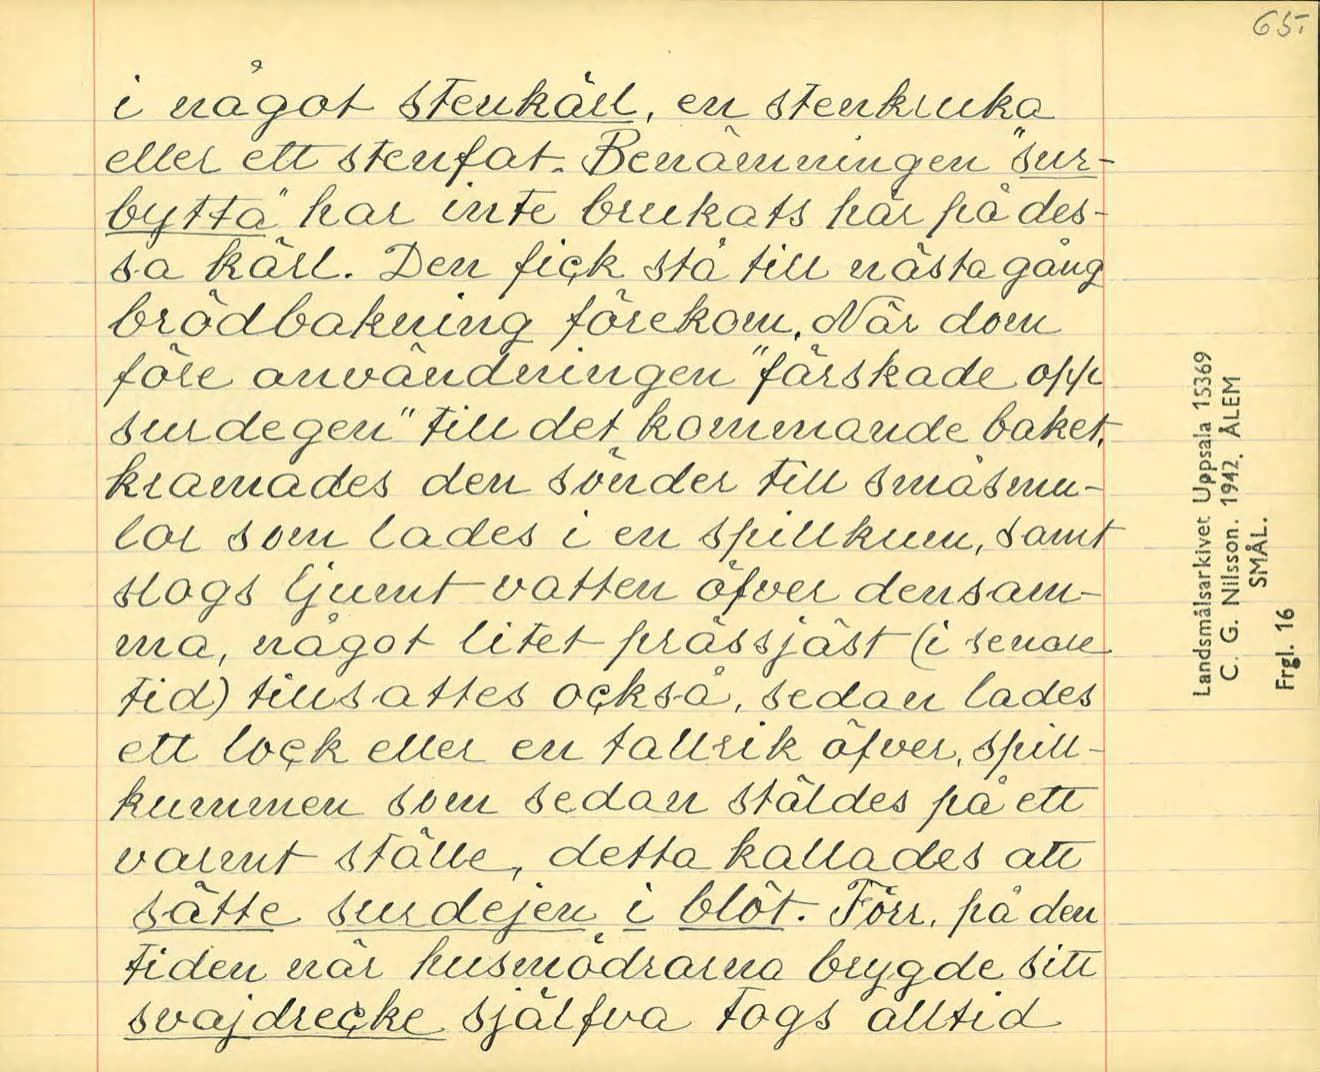 65.
i något stenkärl, en stenkruka
eller ett stenfat. Benämningen "sur-
bytta" har inte brukats här på des-
sa kärl. Den fick stå till nästa gång
brödbakning förekom. När dom
före användningen "färskade opp
surdegen" till det kommande baket,
kramades den sönder till småsmu-
lor som lades i en spillkum, samt
slogs ljumt vatten öfver densam-
ma, något litet prässjäst (i senare
tid) tillsattes också, sedan lades
ett lock eller en tallrik öfver, spill-
kummen som sedan stäldes på ett
varmt ställe, detta kallades att
sätte surdejen i blöt. Förr, på den
tiden när husmödrarna brygde sitt
svajdrecke själfva togs alltid
Landsmålsarkivet Uppsala 15369
C. G. Nilsson. 1942. ÅLEM
SMÅL.
Frgl. 16